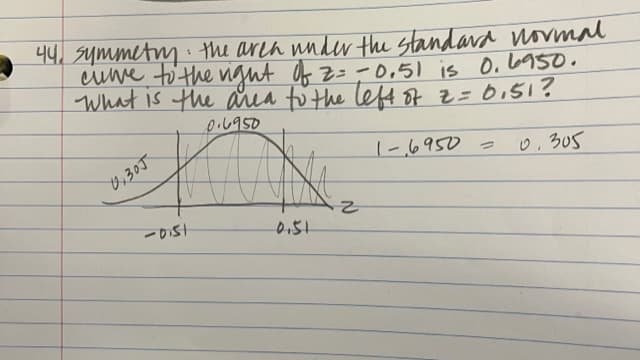 44. symmetry: the area under the standard normal
curve to the right of z = -0.51 is 0.6950.
what is the area to the left of z = 0.51?
0.6950
1 - .6950 = 0.305
0.305
z
-0.51 0.51